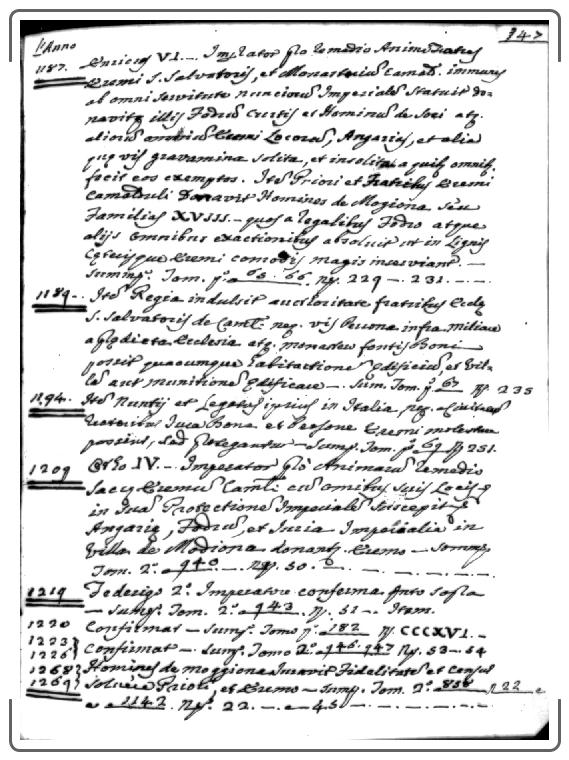 347
Anno
1187. Enricus VI. Imperator pro remedio Animae
Eremi S. Salvatoris, et Monasterium Camald. immunes
ab omni servitute Imperiale Statuit do-
navitq illis Fodrum Curtis et Hominum de Soci atq.
aliorum Eremi Locorum, Angarias, et alia
quę vis gravamina solita, et insolita, a quib omnib.
facit eos exemptos. Ite Priori et Fratribus Eremi
Camalduli Donavit Homines de Mogiona seu
Familias XVIII. quos a legalibus Fodro atque
alijs omnibus exactionibus absoluit ut in Lignis
Eremi comodis magis inserviant. —
Tom. pº 65. 66 Nº 229 - 231. - - -
1189. Ite Regia indulsit auctoritate fratribus
S. Salvatoris de Camli neq. vis Persona infra miliare
a Ecclesia atq. monasterio fontis Boni
possit quacumque habitatione edificiu, et Vil-
la aut munitione edificare — Sum. Tom. pº 67 Nº 235
1194. Ite Nuntijs et Legatis ipsius in Italia
Iura Bona et Persone Eremi molestare
possint, sed protegantur — Tom. pº 69 Nº 251.
1209 Otho IV. — Imperator pro Animarum remedio
Eremum Camli cu omnibus suis Locis
in sua Protectione Imperiale suscepit
Angarie, Fodrum, et Imperialia in
Villa de Modiona Eremo —
Tom. 2º 940 — Nº. 50.
1219 Federigo 2º. Imperatore conferma
— Tom. 2º. 943. Nº. 51 — Item.
1220 Confirmat — Tomo pº. 182 Nº CCCXVI. —
1223 }
1226 } Confirmat — Tomo 2º. 946. 947 Nº. 53 - 54
1268 } Homines de moggiona Fidelitate et
1269 } Priori, et Eremo — Tom. 2º. 838 22
e 1142 Nº. 22. — e — 45 —